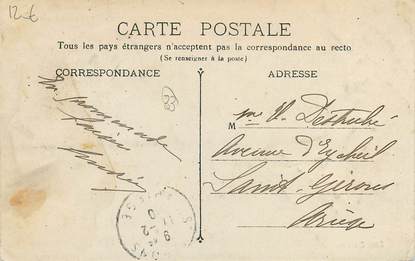 12€
CARTE POSTALE
Tous les pays étrangers n'acceptent pas la correspondance au recto
(Se renseigner à la poste)
CORRESPONDANCE
ADRESSE
En promenade
M
Avenue d'Eycheil
Saint-Girons
Ariège